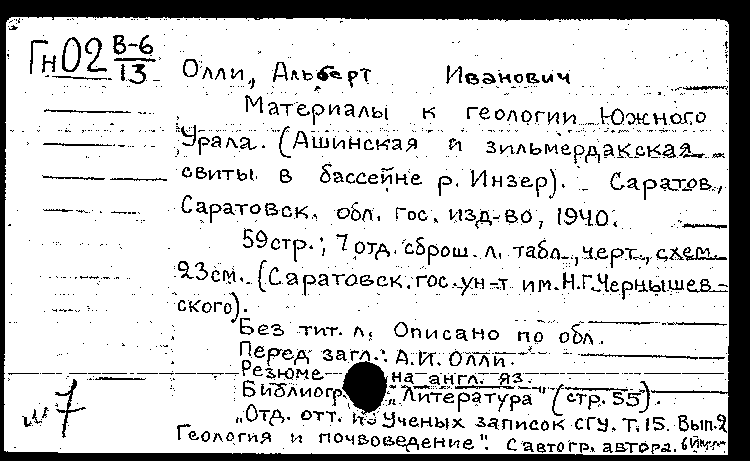 Гн02 В-6/13
Олли, Альберт Иванович
Материалы к геологии Южного
Урала. (Ашинская и зильмердакская
свиты в бассейне р. Инзер). Саратов,
Саратовск. обл. гос. изд-во, 1940.
59стр.; 7 отд. сброш. л. табл., черт., схем.
23см. (Саратовск. гос. ун-т им. Н.Г. Чернышев-
ского).
Без тит. л. Описано по обл.
Перед загл.: А.И. Олли.
Резюме на англ. яз.
Библиогр. "Литература" (стр. 55).
"Отд. отт. из Ученых записок СГУ. Т. 15. Вып. 2
Геология и почвоведение". С автогр. автора.
м 7